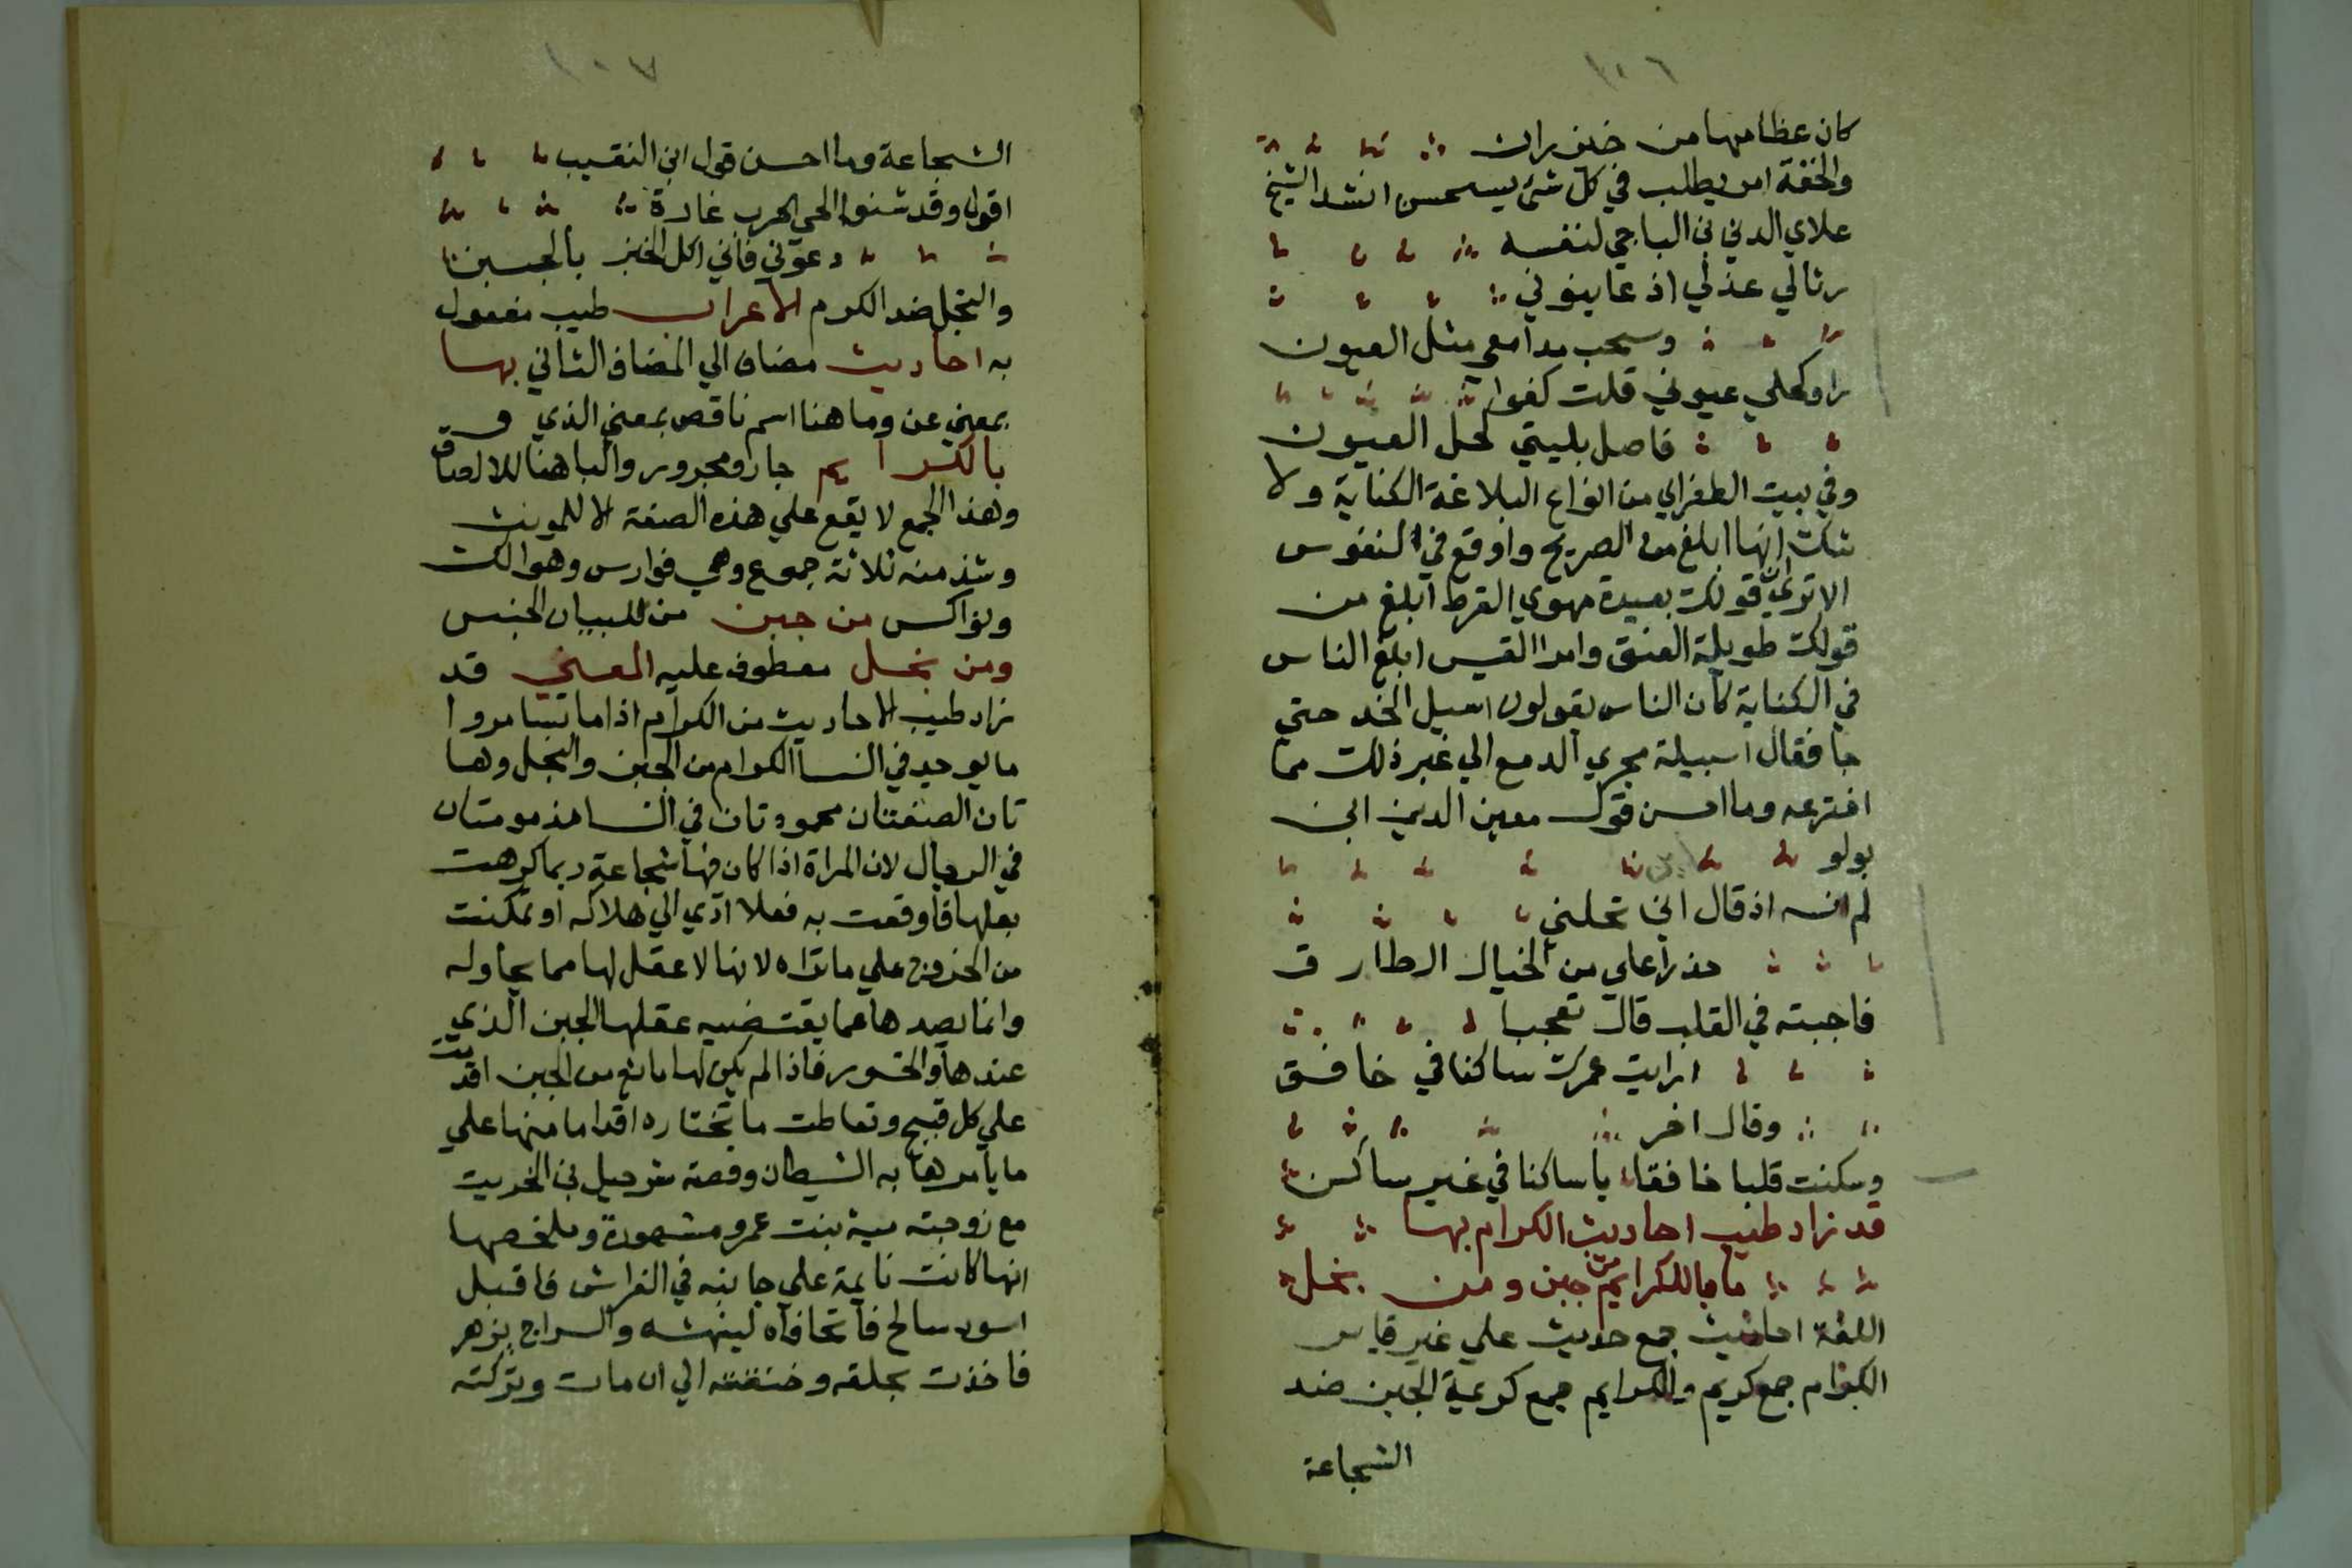 ١٠٦
كان عظامها من خيزران
والخفة امر يطلب في كل شئ يستحسن انشد الشيخ
علاي الدين بن الباجي لنفسه
رثالي عذلي اذ عاينوني
وسحب مدامعي مثل العيون
راو كحلي عيوني قلت كفوا
فاصل بليتي كحل العيون
وفي بيت الطغراي من انواع البلاغة الكناية ولا
شك انها ابلغ من الصريح واوقع في النفوس
الا تري ان قولك بعيدة مهوي القرط ابلغ من
قولك طويلة العنق وامرا القيس ابلغ الناس
في الكناية كان الناس يقولون اسيل الخد حتي
جا فقال اسيلة مجري الدمع الي غير ذلك مما
اخترعه وما احسن قول معين الدين ابن
بولو
لم انسه اذ قال اين تحلني
حذرا علي من الخيال الطارق
فاجبته في القلب قال تعجبا
ارايت عمرك ساكنا في خافق
وقال اخر
وسكنت قلبا خافقا يا ساكنا في غير ساكن
قد زاد طيب احاديث الكرام بها
ما بالكرايم من جبن ومن بخل
اللغة احاديث جمع حديث علي غير قياس
الكرام جمع كريم والكرايم جمع كريمة الجبن ضد
الشجاعة
١٠٧
الشجاعة وما احسن قول ابن النقيب
اقول وقد شنوا الي الحرب غارة
دعوني فاني اكل الخبز بالجبن
والبخل ضد الكرم الاعراب طيب مفعول
به احاديث مضاف الي المضاف الثاني بها
بمعني عن وما هنا اسم ناقص بمعني الذي و
بالكرايم جار ومجرور والبا هنا للالصاق
وهذا الجمع لا يقع علي هذه الصفة الا للمونث
وشذ منه ثلاثة جموع وهي فوارس وهوالك
ونواكس من جبن من للبيان الجنس
ومن بخل معطوف عليه المعني قد
زاد طيب الاحاديث من الكرام اذا ما تسامروا
ما يوجد في النسا الكرام من الجبن والبخل وها
تان الصفتان محمودتان في النسا مذمومتان
في الرجال لان المراة اذا كان فيها شجاعة ربما كرهت
بعلها فاوقعت به فعلا ادي الي هلاكه او تمكنت
من الخروج علي ما تراه لانها لا عقل لها مما يحاوله
وانما يصدها عما يقتضيه عقلها الجبن الذي
عندها والخور فاذا لم يكن لها مانع من الجبن اقدمت
علي كل قبيح وتعاطت ما تختاره اقداما منها علي
ما يامرها به الشيطان وقصة شرحبيل بن الحريث
مع زوجته مية بنت عمرو مشهورة وملخصها
انها كانت نايمة علي جانبه في الفراش فاقبل
اسود سالخ فاتحافاه لينهشه والسراج يزهر
فاخذت بحلقه وخنقته الي ان مات وتركته